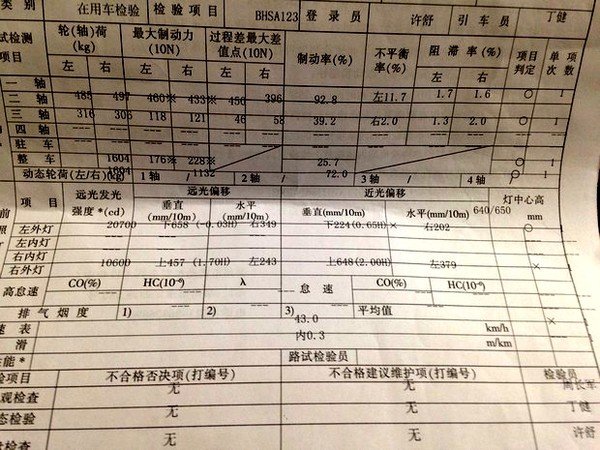 类 别 在用车检验 检 验 项 目 BHSA123 登 录 员 许舒 引 车 员 丁健
试检测 轮(轴)荷(kg) 最大制动力(10N) 过程差最大差值点(10N) 制动率(%) 不平衡率(%) 阻 滞 率(%) 项目判定 单项次数
项目 左 右 左 右 左 右 左 右
一 轴 485 497 460※ 433※ 450 396 92.8 左11.7 1.7 1.6 ○ 1
二 轴 316 306 118 121 46 58 39.2 右2.0 1.3 2.0 ○ 1
三 轴 --- --- --- --- --- --- --- --- --- ---
四 轴 --- --- --- --- --- --- --- --- --- ---
驻 车 1604 176※ 228※ 25.7 ○ 1
整 车 1132 72.0 ○ 1
动态轮荷(左/右)(kg) 1轴 / 2轴 / 3轴 / 4轴 /
项 目 远光发光强度*(cd) 远光偏移 近光偏移 灯中心高mm
垂直(mm/10m) 水平(mm/10m) 垂直(mm/10m) 水平(mm/10m) 640/650
左外灯 20700 下658 (-0.03H) 右349 下224(0.65H)× 右202 ○
左内灯 --- --- --- --- ---
右内灯 --- --- --- --- ---
右外灯 10600 上457 (1.70H) 左243 上648(2.00H) 左379 ×
高怠速 CO(%) HC(10⁻⁶) λ 怠 速 CO(%) HC(10⁻⁶)
排 气 烟 度 1) 2) 3) 平均值
速 表 43.0 km/h ×
滑 内0.3 m/km
性能* 路试检验员
检验项目 不合格否决项(打编号) 不合格建议维护项(打编号) 检验员
观检查 无 无 周长军
态检验 无 无 丁健
检查 无 无 许舒